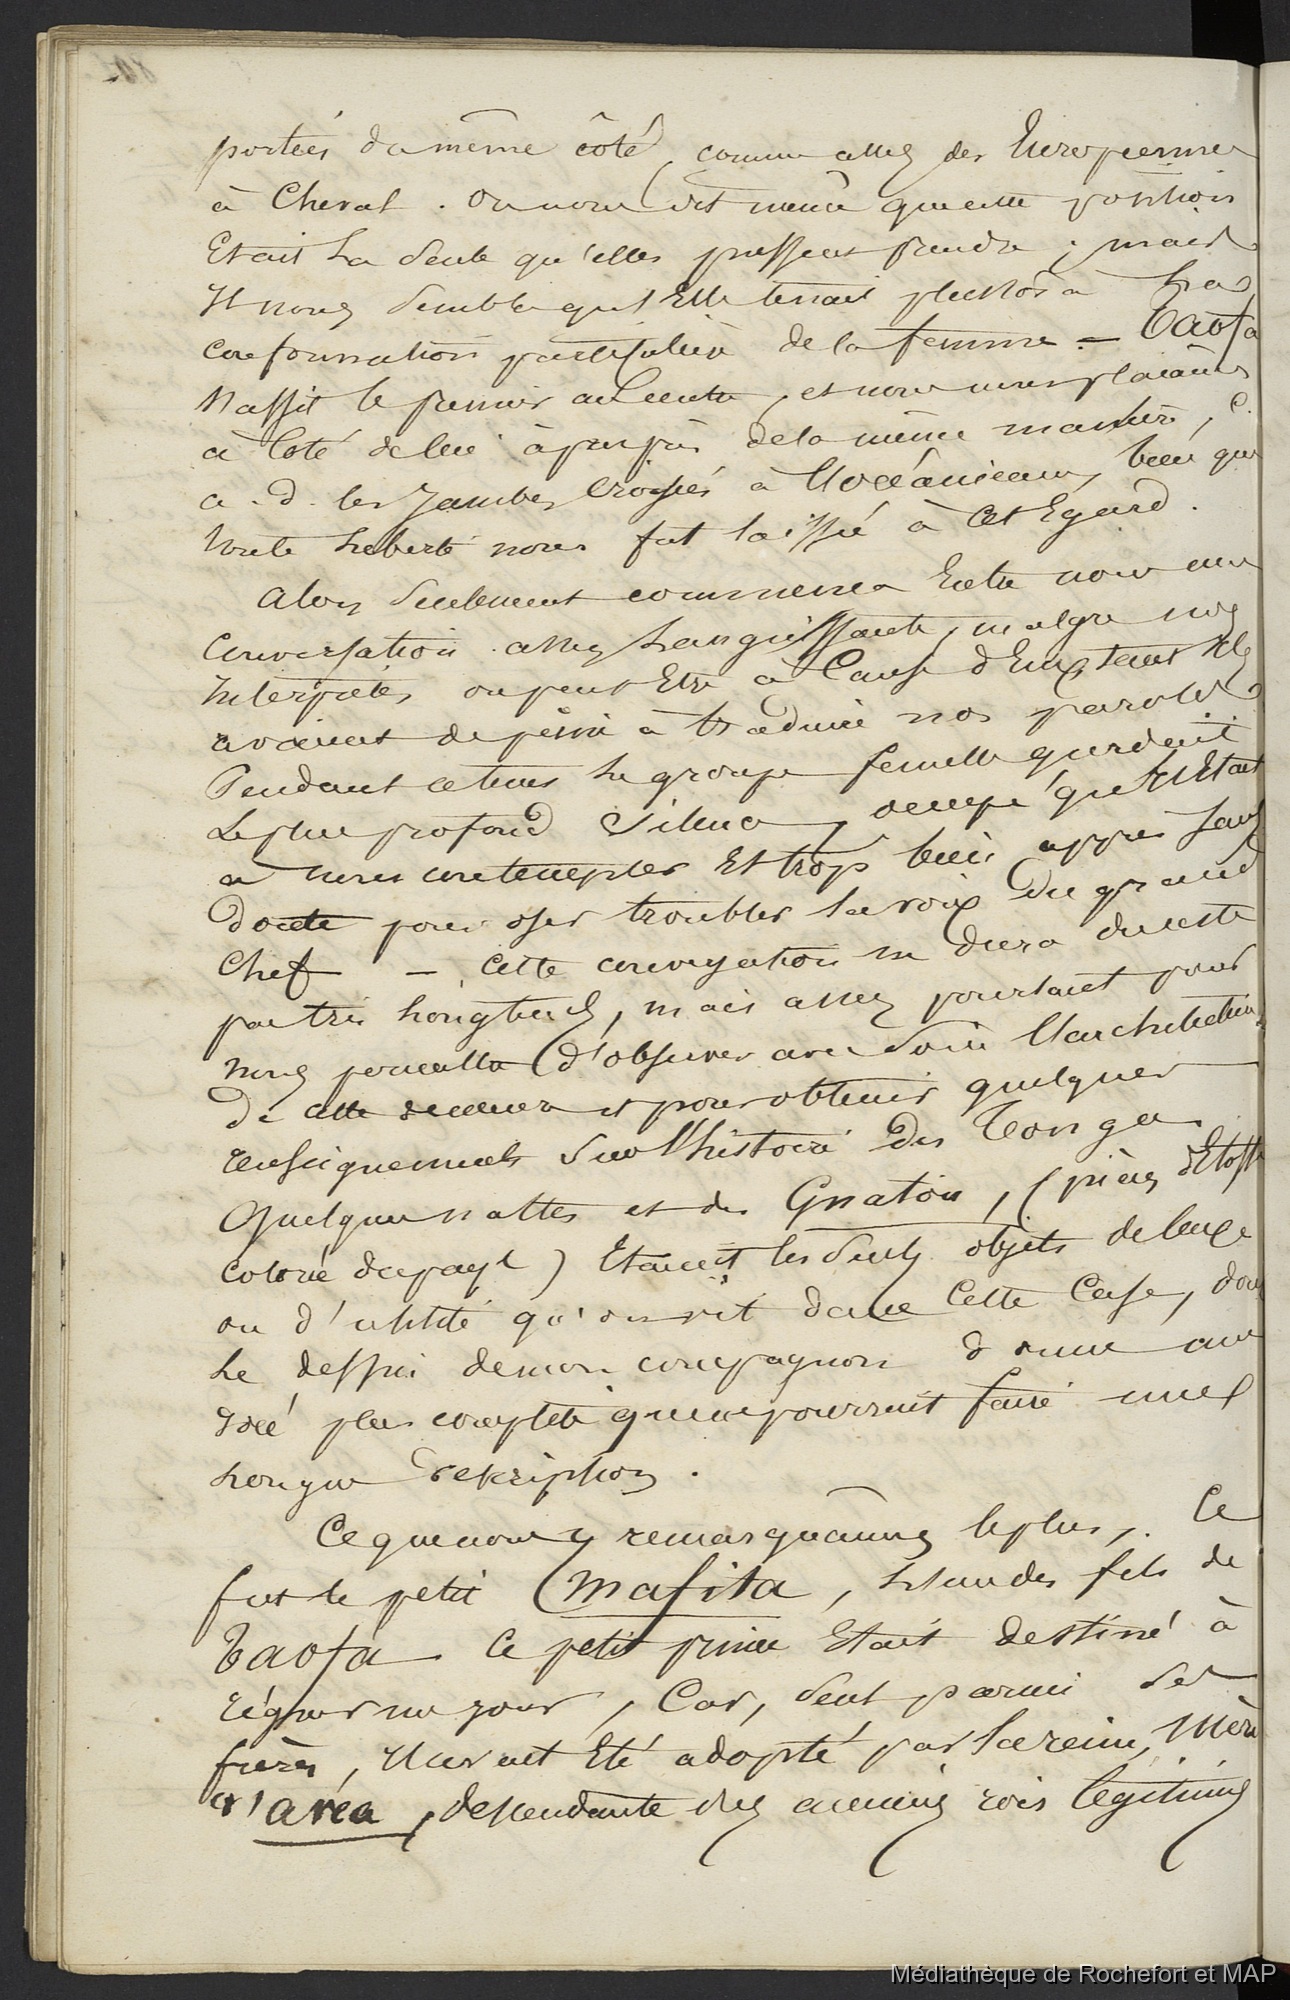 portées du même côté, comme assez des Européennes
à Cheval. On nous dit même que cette position
Etait la seule qu'elles pussent prendre ; mais
Il nous semble qu'Elle tenait plustôt à la
conformation particulière de la femme. — Taofa
s'assit le premier au Centre, et nous nous plaçâmes
à Coté de lui à peu près de la même manière, c.
a. d. les Jambes Croisées à l'Océanienne, bien que
toute liberté nous fut laissée à cet Egard.
Alors seulement commença Entre nous une
Conversation assez Languissante, malgré nos
Interprètes, ou peut Etre à Cause d'Eux, tant Ils
avaient de peine à traduire nos paroles
Pendant ce tems le groupe femelle gardait
Le plus profond Silence, occupé qu'Il Etait
a nous contempler Et trop bien appris sans
doute pour oser troubler la voix du grand
Chef — Cette conversation ne dura du reste
pas très longtems, mais assez pourtant pour
nous permettre d'observer avec soin l'architecture
de cette demeure et pour obtenir quelques
renseignements sur l'histoire des Tonga
Quelques nattes et des Gnatou, (pièces d'Etoffe
colorié du pays) Etaient les seuls objets de luxe
ou d'utilité qu'on vit dans Cette Case, dont
le dessin de mon compagnon donne une
Idée plus complète que ne pourrait faire une
longue description.
Ce que nous y remarquâmes le plus, Ce
fut le petit Mafita, l'un des fils de
Taofa. Ce petit prince Etait destiné à
régner un jour, Car, seul parmi ses
frères, Il avait Eté adopté par la reine Mère
d'aréa, descendante des anciens rois légitimes
Médiathèque de Rochefort et MAP